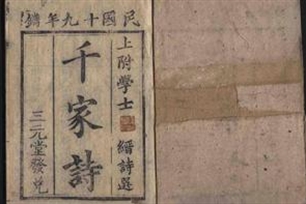 民國十九年鐫
上附學士縉詩選
千家詩
三元堂發兌